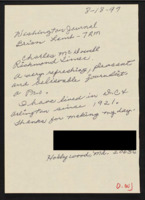 2-18-97
Washington Journal
Brian Lamb - 7AM
Charles McDowell
Richmond Times
A very refreshing, pleasant
and believable journalist
a Pro.
I have lived in D.C. &
Arlington since 1921.
Thanks for making my day.
Hollywood, Md.
D.WJ